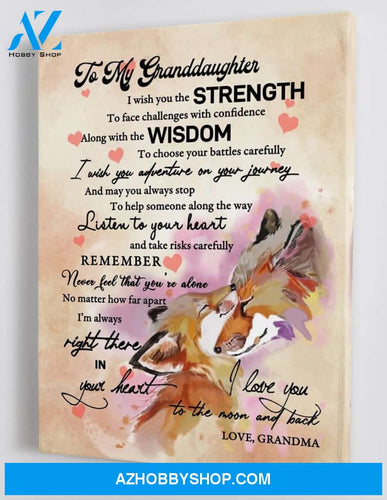 AZ
HOBBY SHOP
To My Granddaughter
I wish you the STRENGTH
To face challenges with confidence
Along with the WISDOM
To choose your battles carefully
I wish you adventure on your journey
And may you always stop
To help someone along the way
Listen to your heart
and take risks carefully
REMEMBER
Never feel that you're alone
No matter how far apart
I'm always
right there
IN
your heart
I love you
to the moon and back
LOVE, GRANDMA
AZHOBBYSHOP.COM